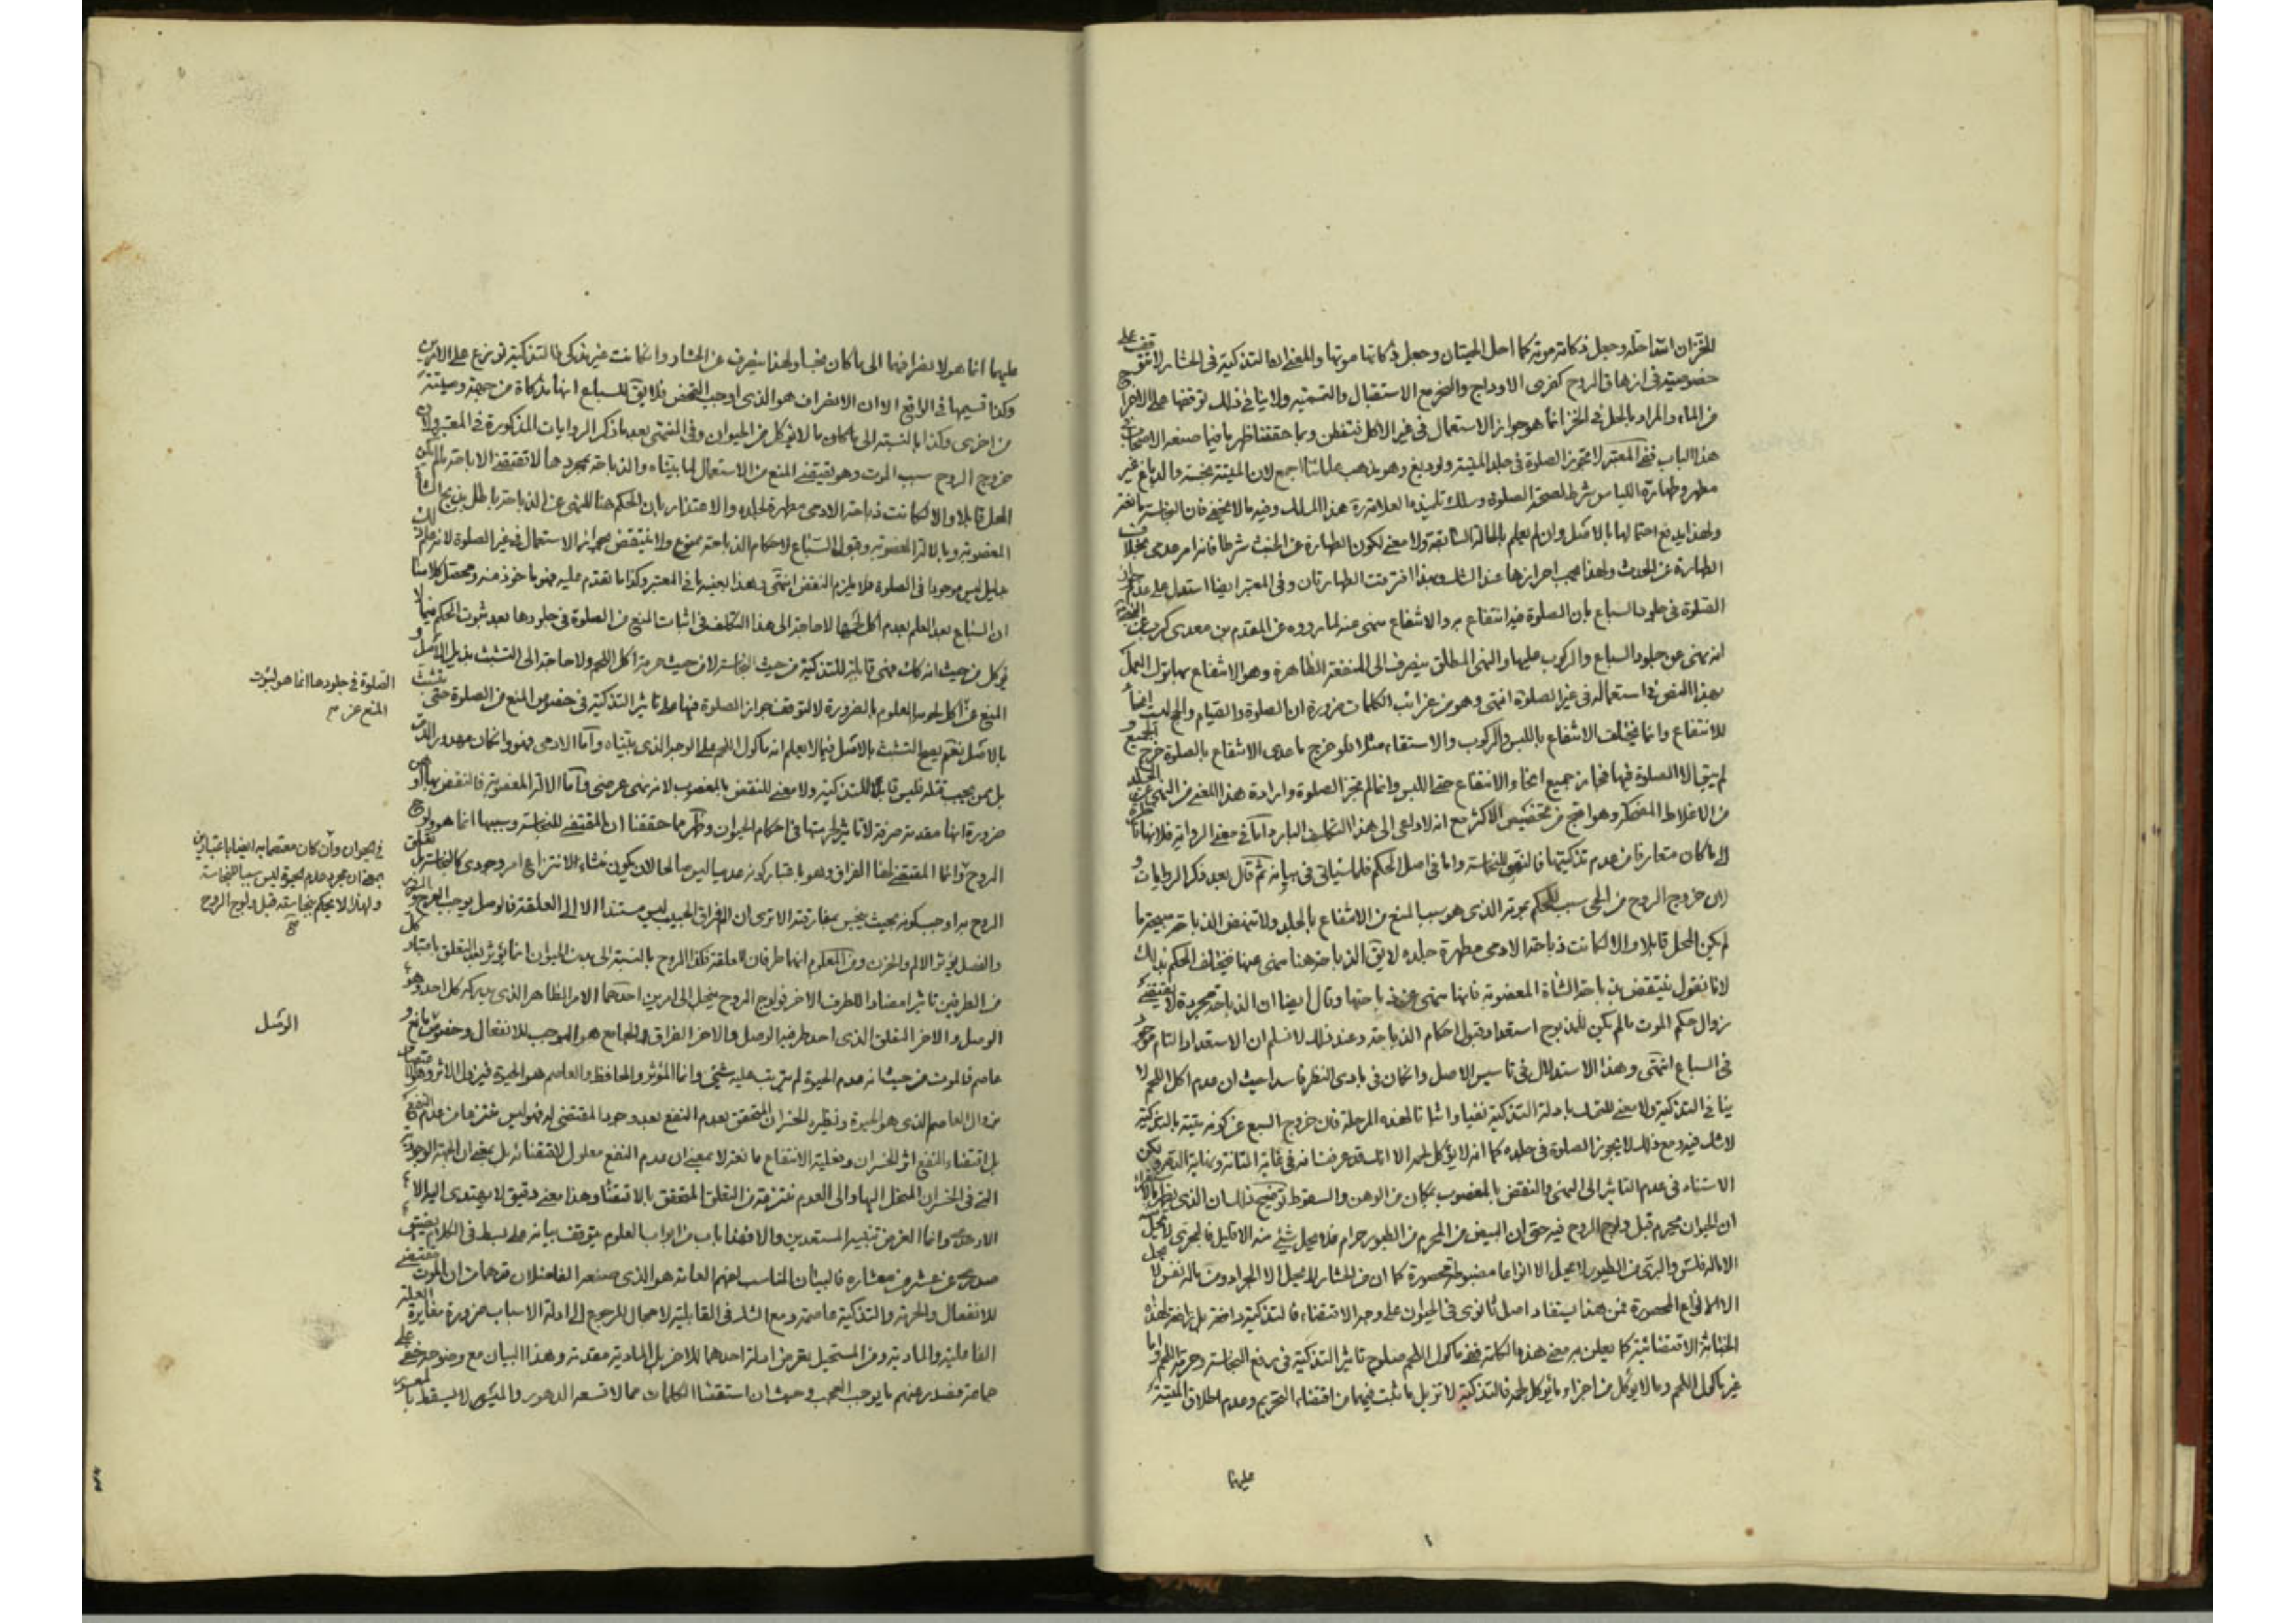 للخزان الله احله وجعل ذكاته موته كما احل الحيتان وجعل ذكاتها موتها والمعنى ان التذكية في الحشار لا تتوقف على
خصوصيته في ازهاق الروح كفرى الاوداج والنحر مع الاستقبال والتسمية ولا ينافي ذلك توقفها على الاخراج
من الماء والمراد بالحل في الخز انما هو جواز الاستعمال في غير الاكل فتفطن وبما حققنا ظهر ما فيما صنعه الاصحاب في
هذا الباب ففي المعتبر لا تجوز الصلوة في جلد الميتة ولو دبغ وهو مذهب علمائنا اجمع لان الميتة نجسة والدباغ غير
مطهر وطهارة اللباس شرط لصحة الصلوة وسلك تلميذه العلامة ره هذا المسلك وفيه ما لا يخفى فان النجاسة مانعة
ولهذا يدفع احتمالها بالاصل وان لم يعلم بالحالة السابقة ولا معنى لكون الطهارة عن الخبث شرطا فانه امر عدمي بخلاف
الطهارة عن الحدث ولهذا يجب احرازها عند الشك وبهذا افترقت الطهارتان وفي المعتبر ايضا استدل على عدم جواز
الصلوة في جلود السباع بان الصلوة فيه انتفاع به والانتفاع منهى عنه لما رووه عن المقدم بن معدى كرب عن النبي ص
انه نهى عن جلود السباع والركوب عليها والنهى المطلق ينصرف الى المنفعة الظاهرة وهو الانتفاع بها ترك العمل
بهذا النص في استعماله في غير الصلوة انتهى وهو من غرائب الكلمات ضرورة ان الصلوة والقيام والجلوس ليست انحاء
للانتفاع وانما يختلف الانتفاع باللبس والركوب والاستقاء مثلا فلو خرج ما عدى الانتفاع بالصلوة خرج الجميع و
لم يبق الا الصلوة فيها فجاز جميع انحاء الانتفاع حتى اللبس وانما لم تجز الصلوة وارادة هذا المعنى من النهى عن الجلد
من الاغلاط المضحكة وهو اقبح من تخصيص الاكثر مع انه لا داعى الى هذا التكلف البارد اما في معنى الرواية فلانها ناظرة
الى ما كان متعارفا من عدم تذكيتها فالنهى للنجاسة واما في اصل الحكم فلما سيأتي في بيانه ثم قال بعد ذكر الروايات و
لان خروج الروح من الحى سبب للحكم بموته الذى هو سبب المنع من الانتفاع بالجلد ولا تنهض الذباحة مبيحة ما
لم يكن المحل قابلا والا لكانت ذباحة الادمى مطهرة جلده لا يق الذباحة هنا منهى عنها فيختلف الحكم بذلك
لانا نقول ينتقض بذباحة الشاة المغصوبة فانها منهى عن ذباحتها وقال ايضا ان الذباحة مجردة لا يقتضى
زوال حكم الموت ما لم يكن للمذبوح استعداد قبول احكام الذباحة وعند ذلك لا نسلم ان الاستعداد التام موجود
في السباع انتهى وهذا الاستدلال في تاسيس الاصل وان كان في بادى النظر فاسدا حيث ان عدم اكل اللحم لا
ينافي التذكية ولا معنى للتمسك بادلة التذكية نفيا واثباتا لهذه المرحلة فان خروج السبع عن كونه ميتة بالتذكية
لا شك فيه ومع ذلك لا يجوز الصلوة في جلده كما انه لا يؤكل لحمه الا انك قد عرفت انه في غاية المتانة ونهاية الدقة ولكن
الاستناد في عدم التاثير الى النهى والنقض بالمغصوب بمكان من الوهن والسقوط توضيح ذلك
ان الحيوان محرم قبل ولوج الروح فيه حتى ان البيض من المحرم من الطيور حرام فلا يحل شئ منه الا قليل فالبحرى لا يحل
الا ماله فلس والبرى من الطيور لا يحل الا انواعا مضبوطة محصورة كما ان من الحشار لا يحل الا الجراد ومن ماله نفس لا يحل
الا الانواع المحصورة فمن هذا يستفاد اصل ثانوى في الحيوان على وجه الاقتضاء فالتذكية دافعة بل رافعة لهذه
الخباثة الاقتضائية كما يعلن به معنى هذه الكلمة ففى ماكول اللحم صلوح تاثير التذكية في رفع النجاسة وحرمة اللحم واما
غير ماكول اللحم وما لا يؤكل من اجزاء ما يؤكل لحمه فالتذكية لا تزيل ما ثبت فيهما من اقتضاء التحريم وعدم اطلاق الميتة
عليهما
عليهما انما هو لانصرافهما الى ما كان نجسا ولهذا ينصرف عن الحشار وان كانت غير مذكى فالتذكية توزع على الامرين
وكذا قسيمها في الواقع الا ان الانصراف هو الذى اوجب التمحض فلا يق للسباع انها مذكاة من جهة وميتة
من اخرى وكذا بالنسبة الى ما كان مما لا يؤكل من الحيوان وفي المنتهى بعد ما ذكر الروايات المذكورة في المعتبر ولان
خروج الروح سبب الموت وهو يقتضى المنع من الاستعمال لما بيناه والذباحة بمجردها لا تقتضى الاباحة ما لم يكن
المحل قابلا والا لكانت ذباحة الادمى مطهرة لجلده والاعتذار بان الحكم هنا للنهى عن الذباحة باطل بذبح الشاة
المغصوبة وبالالة المغصوبة وقبول السباع لاحكام الذباحة ممنوع ولا ينتقض بجواز الاستعمال في غير الصلوة لانه علم لذلك
جليل ليس موجودا في الصلوة فلا يلزم النقض انتهى وهذا بعينه ما في المعتبر وكذا ما تقدم عليه فهو ماخوذ منه ومحصل كلامنا
ان السباع بعد العلم بعدم اكل لحمها لا حاجة الى هذا التكلف في اثبات المنع من الصلوة في جلودها بعد ثبوت الحكم فيما لا
يؤكل من حيث انه كك فهى قابلة للتذكية من حيث النجاسة لا من حيث حرمة اكل اللحم ولا حاجة الى التشبث بذيل الاصل و
المنع عن اكل لحومها معلوم بالضرورة لا لتوقف جواز الصلوة فيها على تاثير التذكية في خصوص المنع من الصلوة حتى يتشبث
بالاصل نعم يصح التشبث بالاصل فيما لا يعلم انه ماكول اللحم على الوجه الذى بيناه واما الادمى فهو وان كان مهدور الدم
بل ممن يجب قتله فليس قابلا للتذكية ولا معنى للنقض بالمغصوب لانه نهى عرضى واما الالة المغصوبة فالنقض بها اوهن
ضرورة انها مقدمة صرفة لا تاثير لحرمتها في احكام الحيوان وظهر مما حققنا ان المقتضى للنجاسة وسببها انما هو ولوج
الروح وانما المقتضى لهذا الفراق وهو باعتبار كونه عدميا ليس صالحا لان يكون منشاء الانتزاع امر وجودى كالنجاسة بل تعلق
الروح به اوجب كونه بحيث ينجس بمفارقته الا ترى ان الفراق الحبيب ليس مستندا الا الى العلقة فالوصل يوجب الفرح والسرور
والفصل يؤثر الالم والحزن ومن المعلوم انهما طرفان للعلقة فكذا الروح بالنسبة الى بدن الحيوان انما يؤثر بعد التعلق باعتبار كل
من الطرفين تاثيرا مضادا للطرف الاخر فولوج الروح ينحل الى امرين احدهما الامر الظاهر الذى يدركه كل احد وهو
الوصل والاخر التعلق الذى احد طرفيه الوصل والاخر الفراق والجامع هو الموجب للانفعال وخصوص مانع و
عاصم فالموت من حيث انه عدم الحيوة لم يترتب عليه شئ وانما المؤثر والحافظ والعاصم هو الحيوة فيزول الاثر
زوال العاصم الذى هو الحيوة ونظيره الخسران المتحقق بعدم النفع بعد وجود المقتضى له فهو ليس منتزعا من عدم النفع
بل اقتضاء النفع اثر الخسران وفعلية الانتفاع مانعة لا بمعنى ان عدم النفع معلول لاقتضائه بل بمعنى ان الجهة الوجودية
التى في الخسران المنحل اليها والى العدم منتزعة من التعلق المتحقق بالاقتضاء وهذا معنى دقيق لا يهتدى اليه الا
الاوحدى وانما الغرض تنبيه المستعدين والا فهذا باب من ابواب العلوم يتوقف بيانه على بسط في الكلام يضيق
صدرى عن عشر من معشاره فالبيان المناسب لفهم العامة هو الذى صنعه الفاضلان من ان الموت مقتضى
للانفعال والحرمة والتذكية عاصمة ومع الشك في القابلية لا مجال للرجوع الى ادلة الاسباب ضرورة مغايرة العلة
الفاعلية والمادية ومن المستحيل تعرض ادلة احدهما للاخر بل المادية مقدمة وهذا البيان مع وضوحه خفى على
جماعة فصدر عنهم ما يوجب العجب وحيث ان استقصاء الكلمات مما لا تسعه الدهور والميسور لا يسقط بالمعسور
الصلوة في جلودها انما هو لثبوت
المنع عن
في الحيوان وان كان معتصما به ايضا باعتبار
بمعنى ان مجرد عدم الحيوة ليس سببا للنجاسة
ولهذا لا يحكم بنجاسته قبل ولوج الروح
الوصل